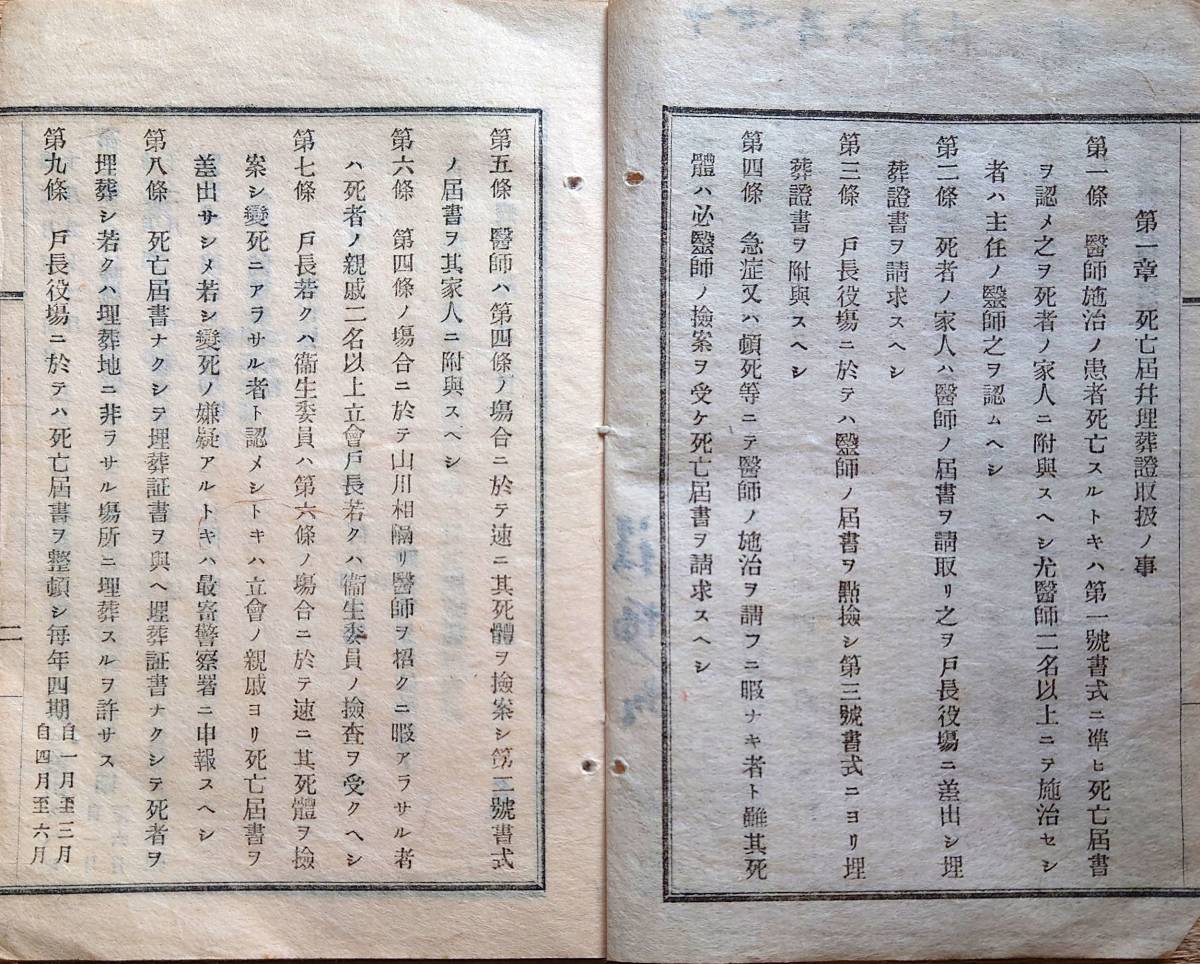 第一章 死亡屆幷埋葬證取扱ノ事
第一條 醫師施治ノ患者死亡スルトキハ第一號書式ニ準ヒ死亡屆書
ヲ認メ之ヲ死者ノ家人ニ附與スヘシ尤醫師二名以上ニテ施治セシ
者ハ主任ノ醫師之ヲ認ムヘシ
第二條 死者ノ家人ハ醫師ノ屆書ヲ請取リ之ヲ戶長役場ニ差出シ埋
葬證書ヲ請求スヘシ
第三條 戶長役場ニ於テハ毉師ノ屆書ヲ點撿シ第三號書式ニヨリ埋
葬證書ヲ附與スヘシ
第四條 急症又ハ頓死等ニテ醫師ノ施治ヲ請フニ暇ナキ者ト雖其死
體ハ必毉師ノ撿案ヲ受ケ死亡屆書ヲ請求スヘシ
第五條 醫師ハ第四條ノ塲合ニ於テ速ニ其死體ヲ撿案シ第二號書式
ノ屆書ヲ其家人ニ附與スヘシ
第六條 第四條ノ塲合ニ於テ山川相隔リ醫師ヲ招クニ暇アラサル者
ハ死者ノ親戚二名以上立會戶長若クハ衞生委員ノ撿査ヲ受クヘシ
第七條 戶長若クハ衞生委員ハ第六條ノ塲合ニ於テ速ニ其死體ヲ撿
案シ變死ニアラサル者ト認メシトキハ立會ノ親戚ヨリ死亡屆書ヲ
差出サシメ若シ變死ノ嫌疑アルトキハ最寄警察署ニ申報スヘシ
第八條 死亡屆書ナクシテ埋葬証書ヲ與ヘ埋葬証書ナクシテ死者ヲ
埋葬シ若クハ埋葬地ニ非ラサル塲所ニ埋葬スルヲ許サス
第九條 戶長役塲ニ於テハ死亡屆書ヲ整頓シ每年四期自一月至三月
自四月至六月
二